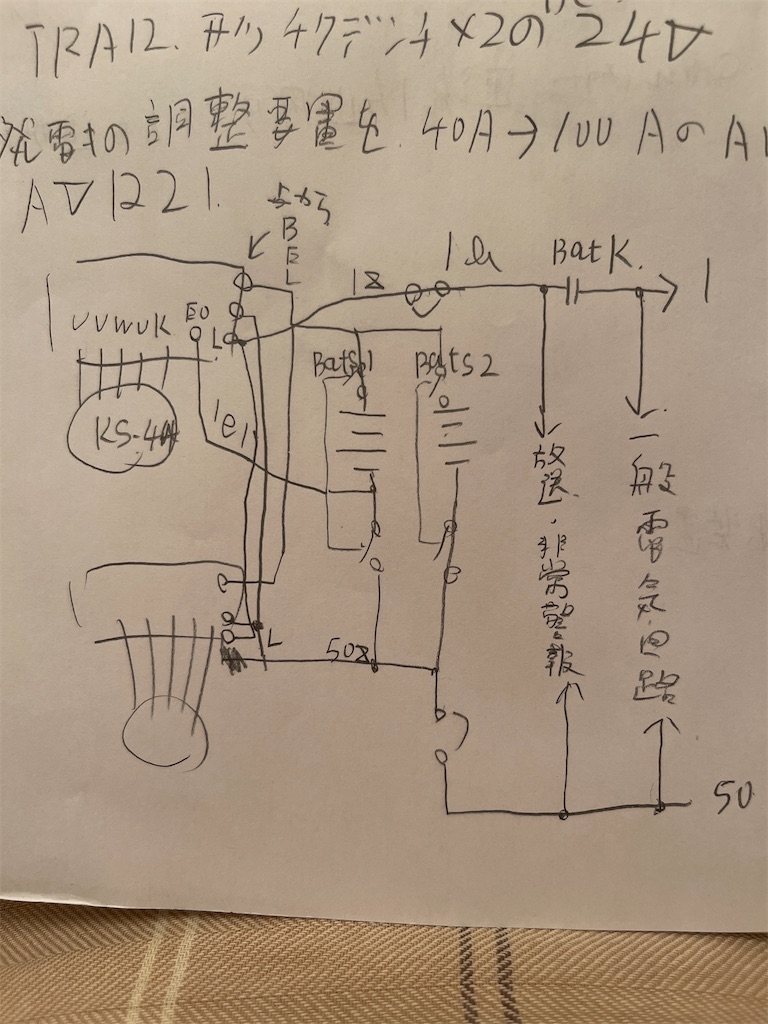 TRA12. 形ッチクデンチ×2の 24V
発電キの調整要置を. 40A→100Aの A
AV1221.
上から
B
E
L
1z
1a
BatK.
1
UVWUK
E0
L
Bats1
Bats2
KS-4A
1e1
放送・非常警報
一般電気回路
L
50z
50